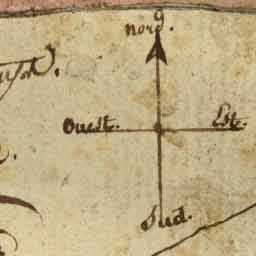 nord.
Ouest. Est.
Sud.